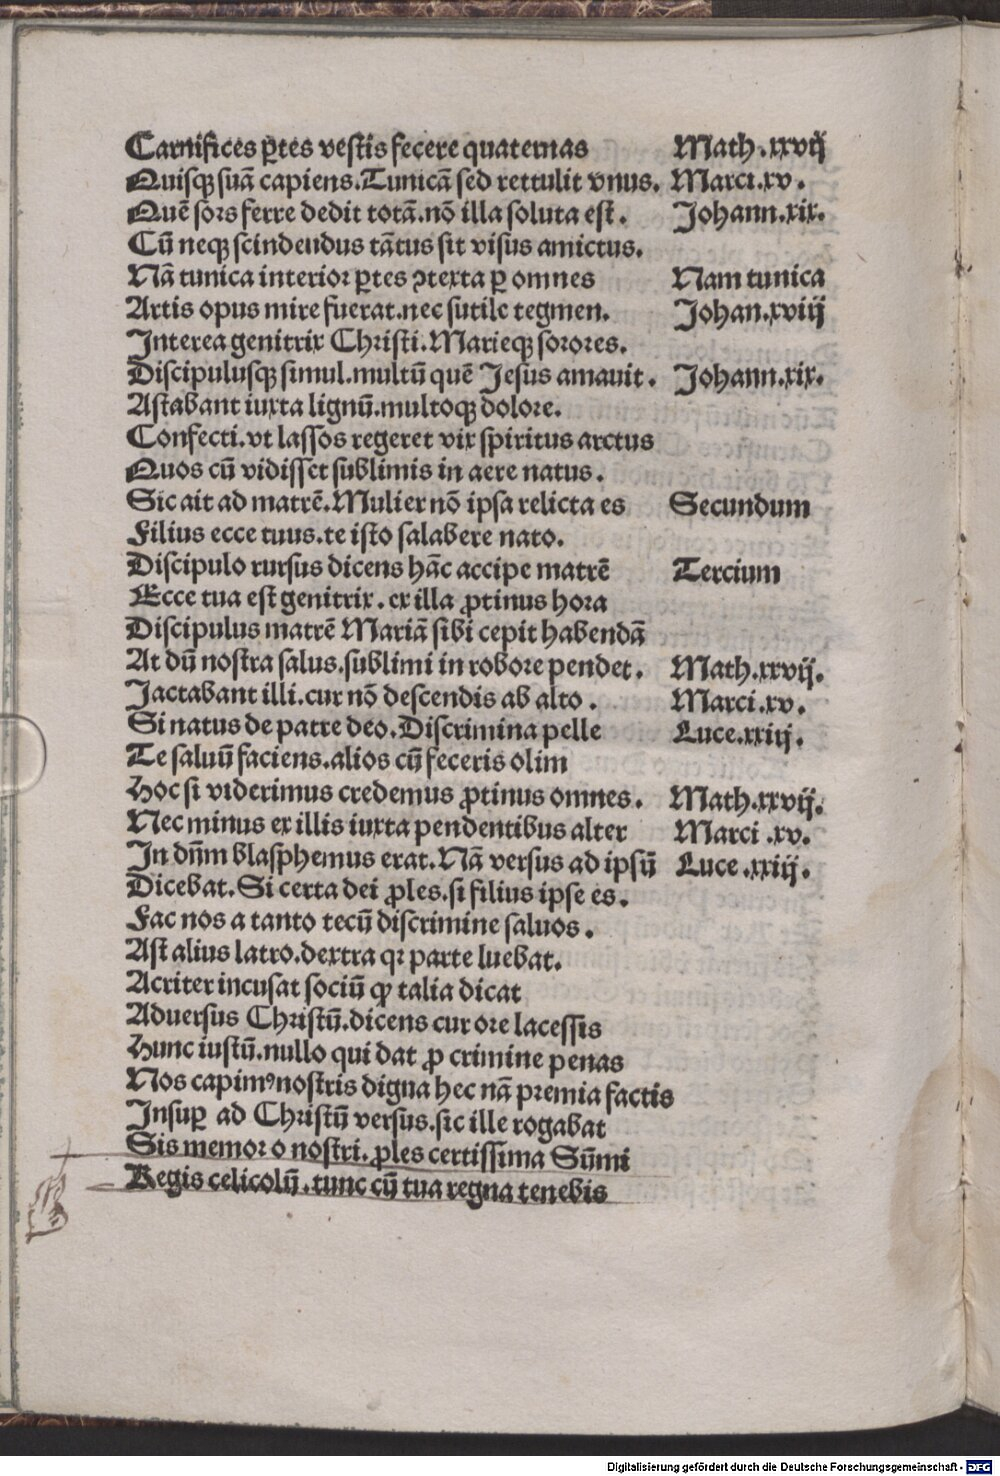 Carnifices ꝑtes vestis fecere quaternas Math.xxvij
Quisqꝫ suã capiens.Tunicã sed rettulit vnus. Marci.xv.
Quẽ sors ferre dedit totã.nõ illa soluta est. Johann.xix.
Cũ neqꝫ scindendus tãtus sit visus amictus.
Nã tunica interior ꝑtes ꝯtexta ꝑ omnes Nam tunica
Artis opus mire fuerat.nec sutile tegmen. Johan.xviij
Interea genitrix Christi.Marieqꝫ sorores.
Discipulusqꝫ simul.multũ quẽ Jesus amauit. Johann.xix.
Astabant iuxta lignũ.multoqꝫ dolore.
Confecti.vt lassos regeret vix spiritus arctus
Quos cũ vidisset sublimis in aere natus.
Sic ait ad matrẽ.Mulier nõ ipsa relicta es Secundum
Filius ecce tuus.te isto salabere nato.
Discipulo rursus dicens hãc accipe matrẽ Tercium
Ecce tua est genitrix.ex illa ꝓtinus hora
Discipulus matrẽ Mariã sibi cepit habendã
At dũ nostra salus.sublimi in robore pendet. Math.xxvij.
Jactabant illi.cur nõ descendis ab alto. Marci.xv.
Si natus de patre deo.Discrimina pelle Luce.xxiij.
Te saluũ faciens.alios cũ feceris olim
Hoc si viderimus credemus ꝓtinus omnes. Math.xxvij.
Nec minus ex illis iuxta pendentibus alter Marci.xv.
In dñm blasphemus erat.Nã versus ad ipsũ Luce.xxiij.
Dicebat.Si certa dei ꝓles.si filius ipse es.
Fac nos a tanto tecũ discrimine saluos.
Ast alius latro.dextra qꝛ parte luebat.
Acriter incusat sociũ ꝙ talia dicat
Aduersus Christũ.dicens cur ore lacessis
Hunc iustũ.nullo qui dat ꝓ crimine penas
Nos capimꝰ nostris digna hec nã premia factis
Insuꝑ ad Christũ versus.sic ille rogabat
Sis memor o nostri.ꝓles certissima Sũmi
Regis celicolũ.tunc cũ tua regna tenebis
Digitalisierung gefördert durch die Deutsche Forschungsgemeinschaft - DFG